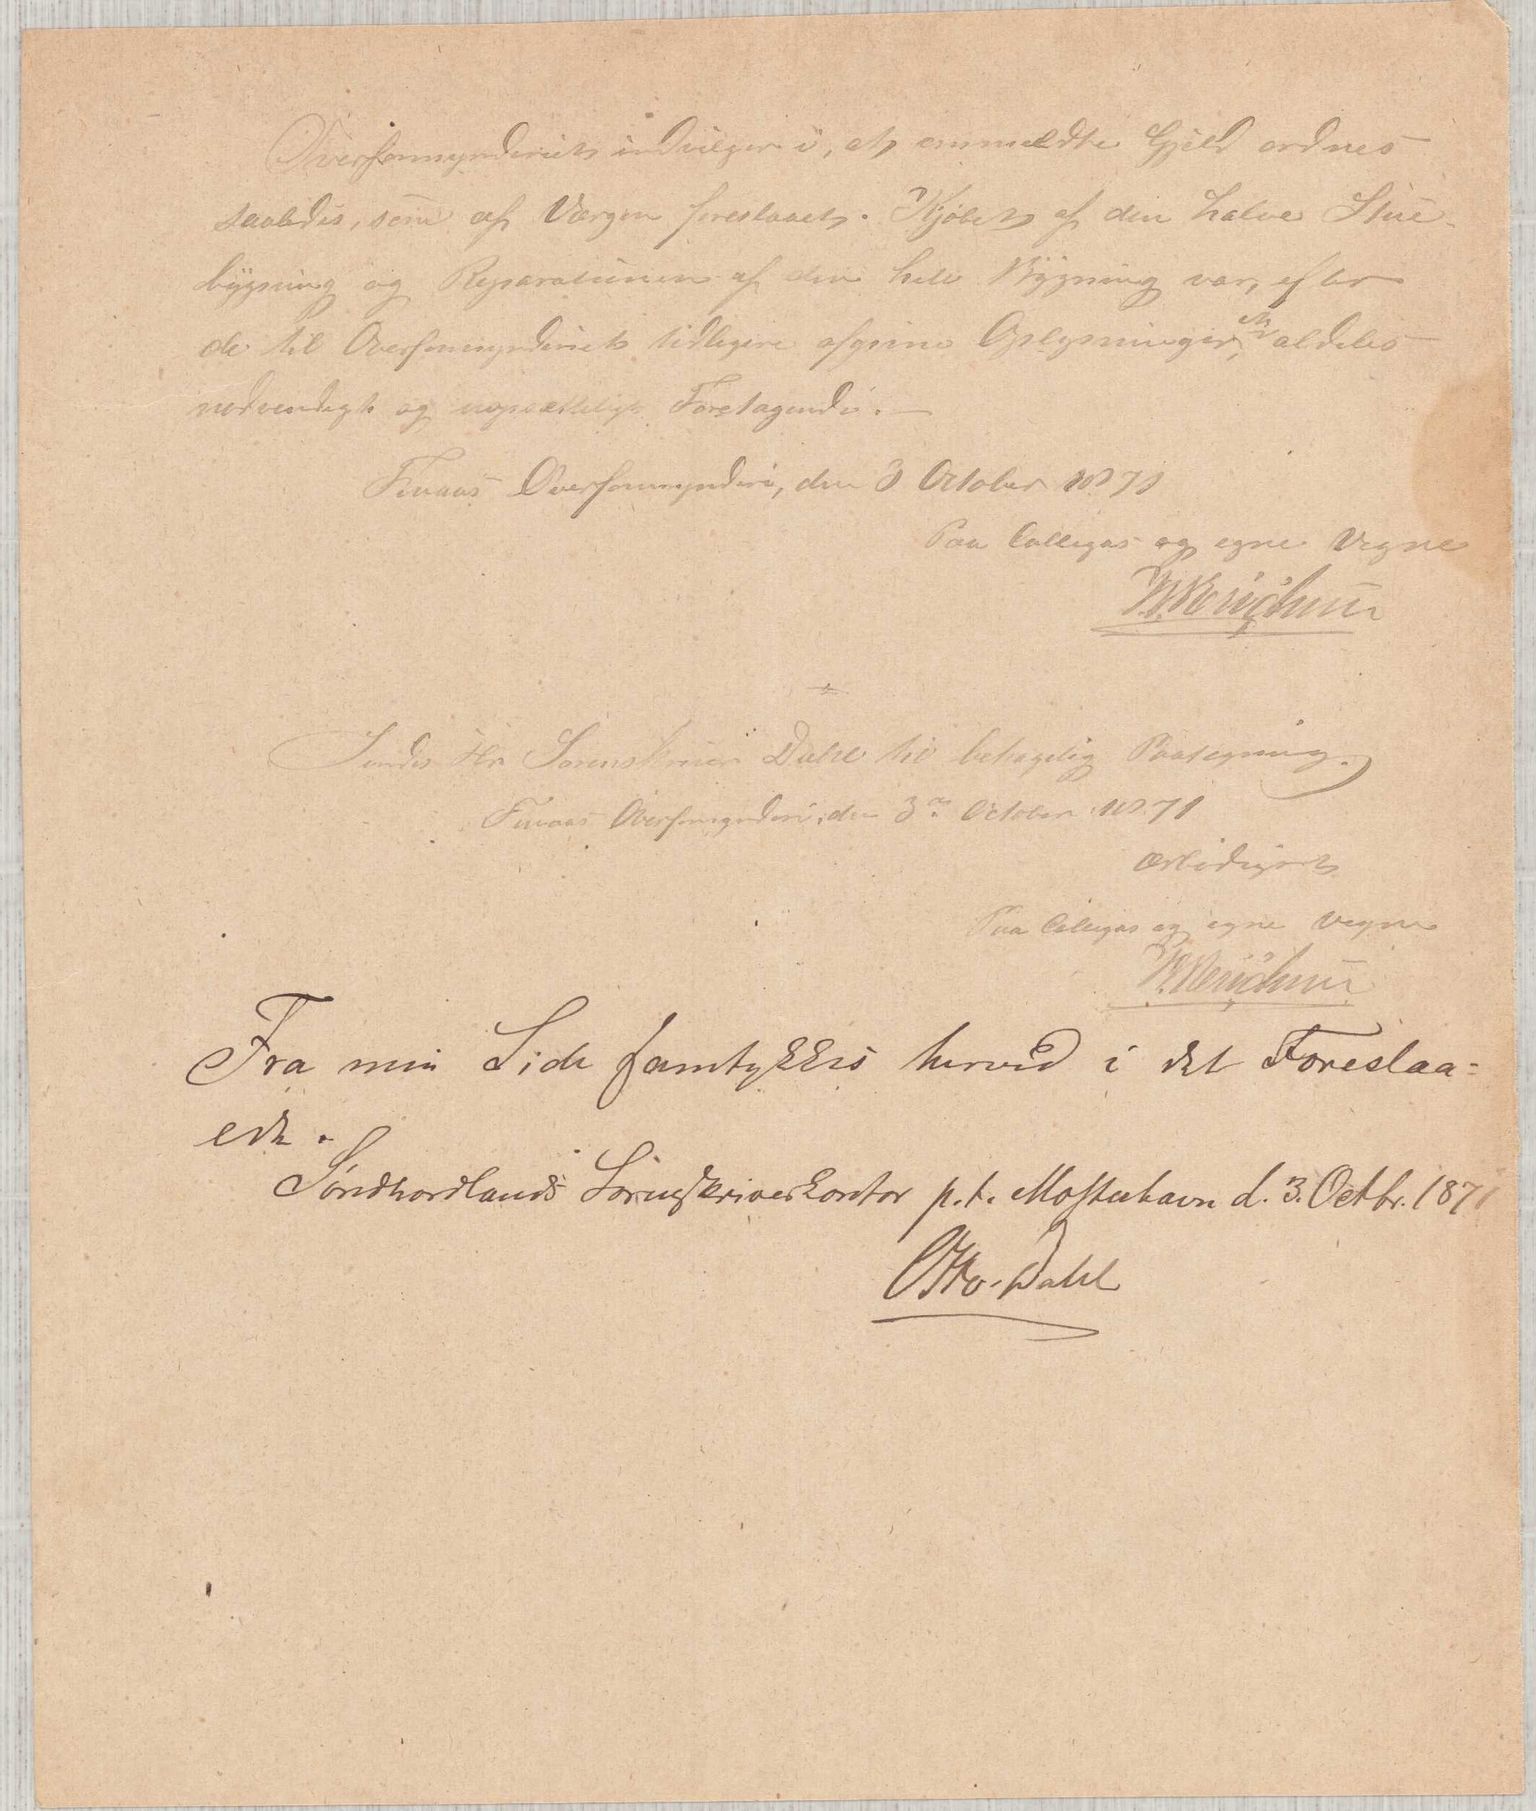 Overformynderiet indvilger i, at ommeldte Gjeld ordnes
saaledes, som af Værgen foreslaaet. Kjøbet af den halve Stue-
bygning og Reparationen af den hele Bygning var, efter
de til Overformynderiet tidligere afgivne Oplysninger, et aldeles
nødvendigt og uopsætteligt Foretagende.
Finaas Overformynderi, den 3 October 1871
Paa Collegas og egne Vegne
Sendes Hr Sorenskriver Dahl til behagelig Paategning.
Finaas Overformynderi, den 3die October 1871
Ærbødigst
Paa Collegas og egne Vegne
Fra min Side samtykkes herved i det Foreslaa=
ede.
Søndhordlands Sorenskriverkontor p.t. Mosterhavn d. 3. Octbr. 1871
Otto Dahl